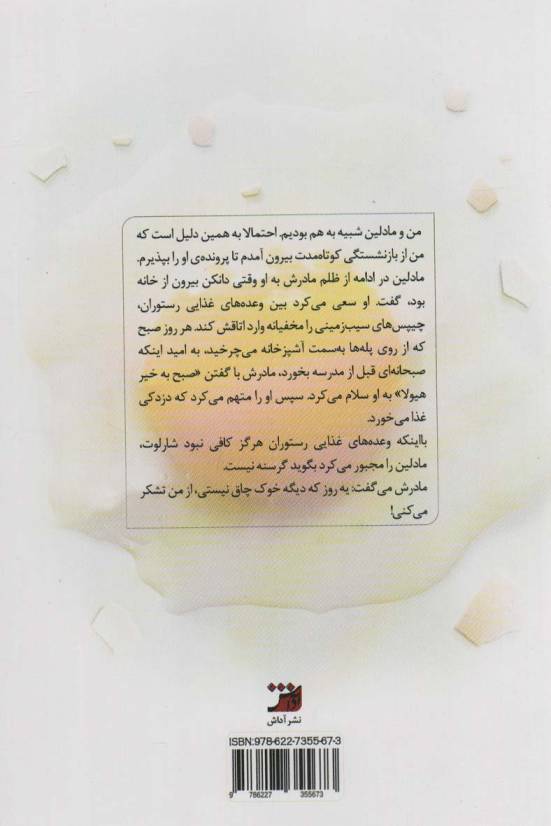 من و مادلین شبیه به هم بودیم. احتمالا به همین دلیل است که
من از بازنشستگی کوتاه‌مدت بیرون آمدم تا پرونده‌ی او را بپذیرم.
مادلین در ادامه از ظلم مادرش به او وقتی دانکن بیرون از خانه
بود، گفت. او سعی می‌کرد بین وعده‌های غذایی رستوران،
چیپس‌های سیب‌زمینی را مخفیانه وارد اتاقش کند. هر روز صبح
که از روی پله‌ها به‌سمت آشپزخانه می‌چرخید، به امید اینکه
صبحانه‌ای قبل از مدرسه بخورد، مادرش با گفتن «صبح به خیر
هیولا» به او سلام می‌کرد. سپس او را متهم می‌کرد که دزدکی
غذا می‌خورد.
بااینکه وعده‌های غذایی رستوران هرگز کافی نبود شارلوت،
مادلین را مجبور می‌کرد بگوید گرسنه نیست.
مادرش می‌گفت: یه روز که دیگه خوک چاق نیستی، از من تشکر
می‌کنی!
آداش
نشر آداش
ISBN:978-622-7355-67-3
9 786227 355673